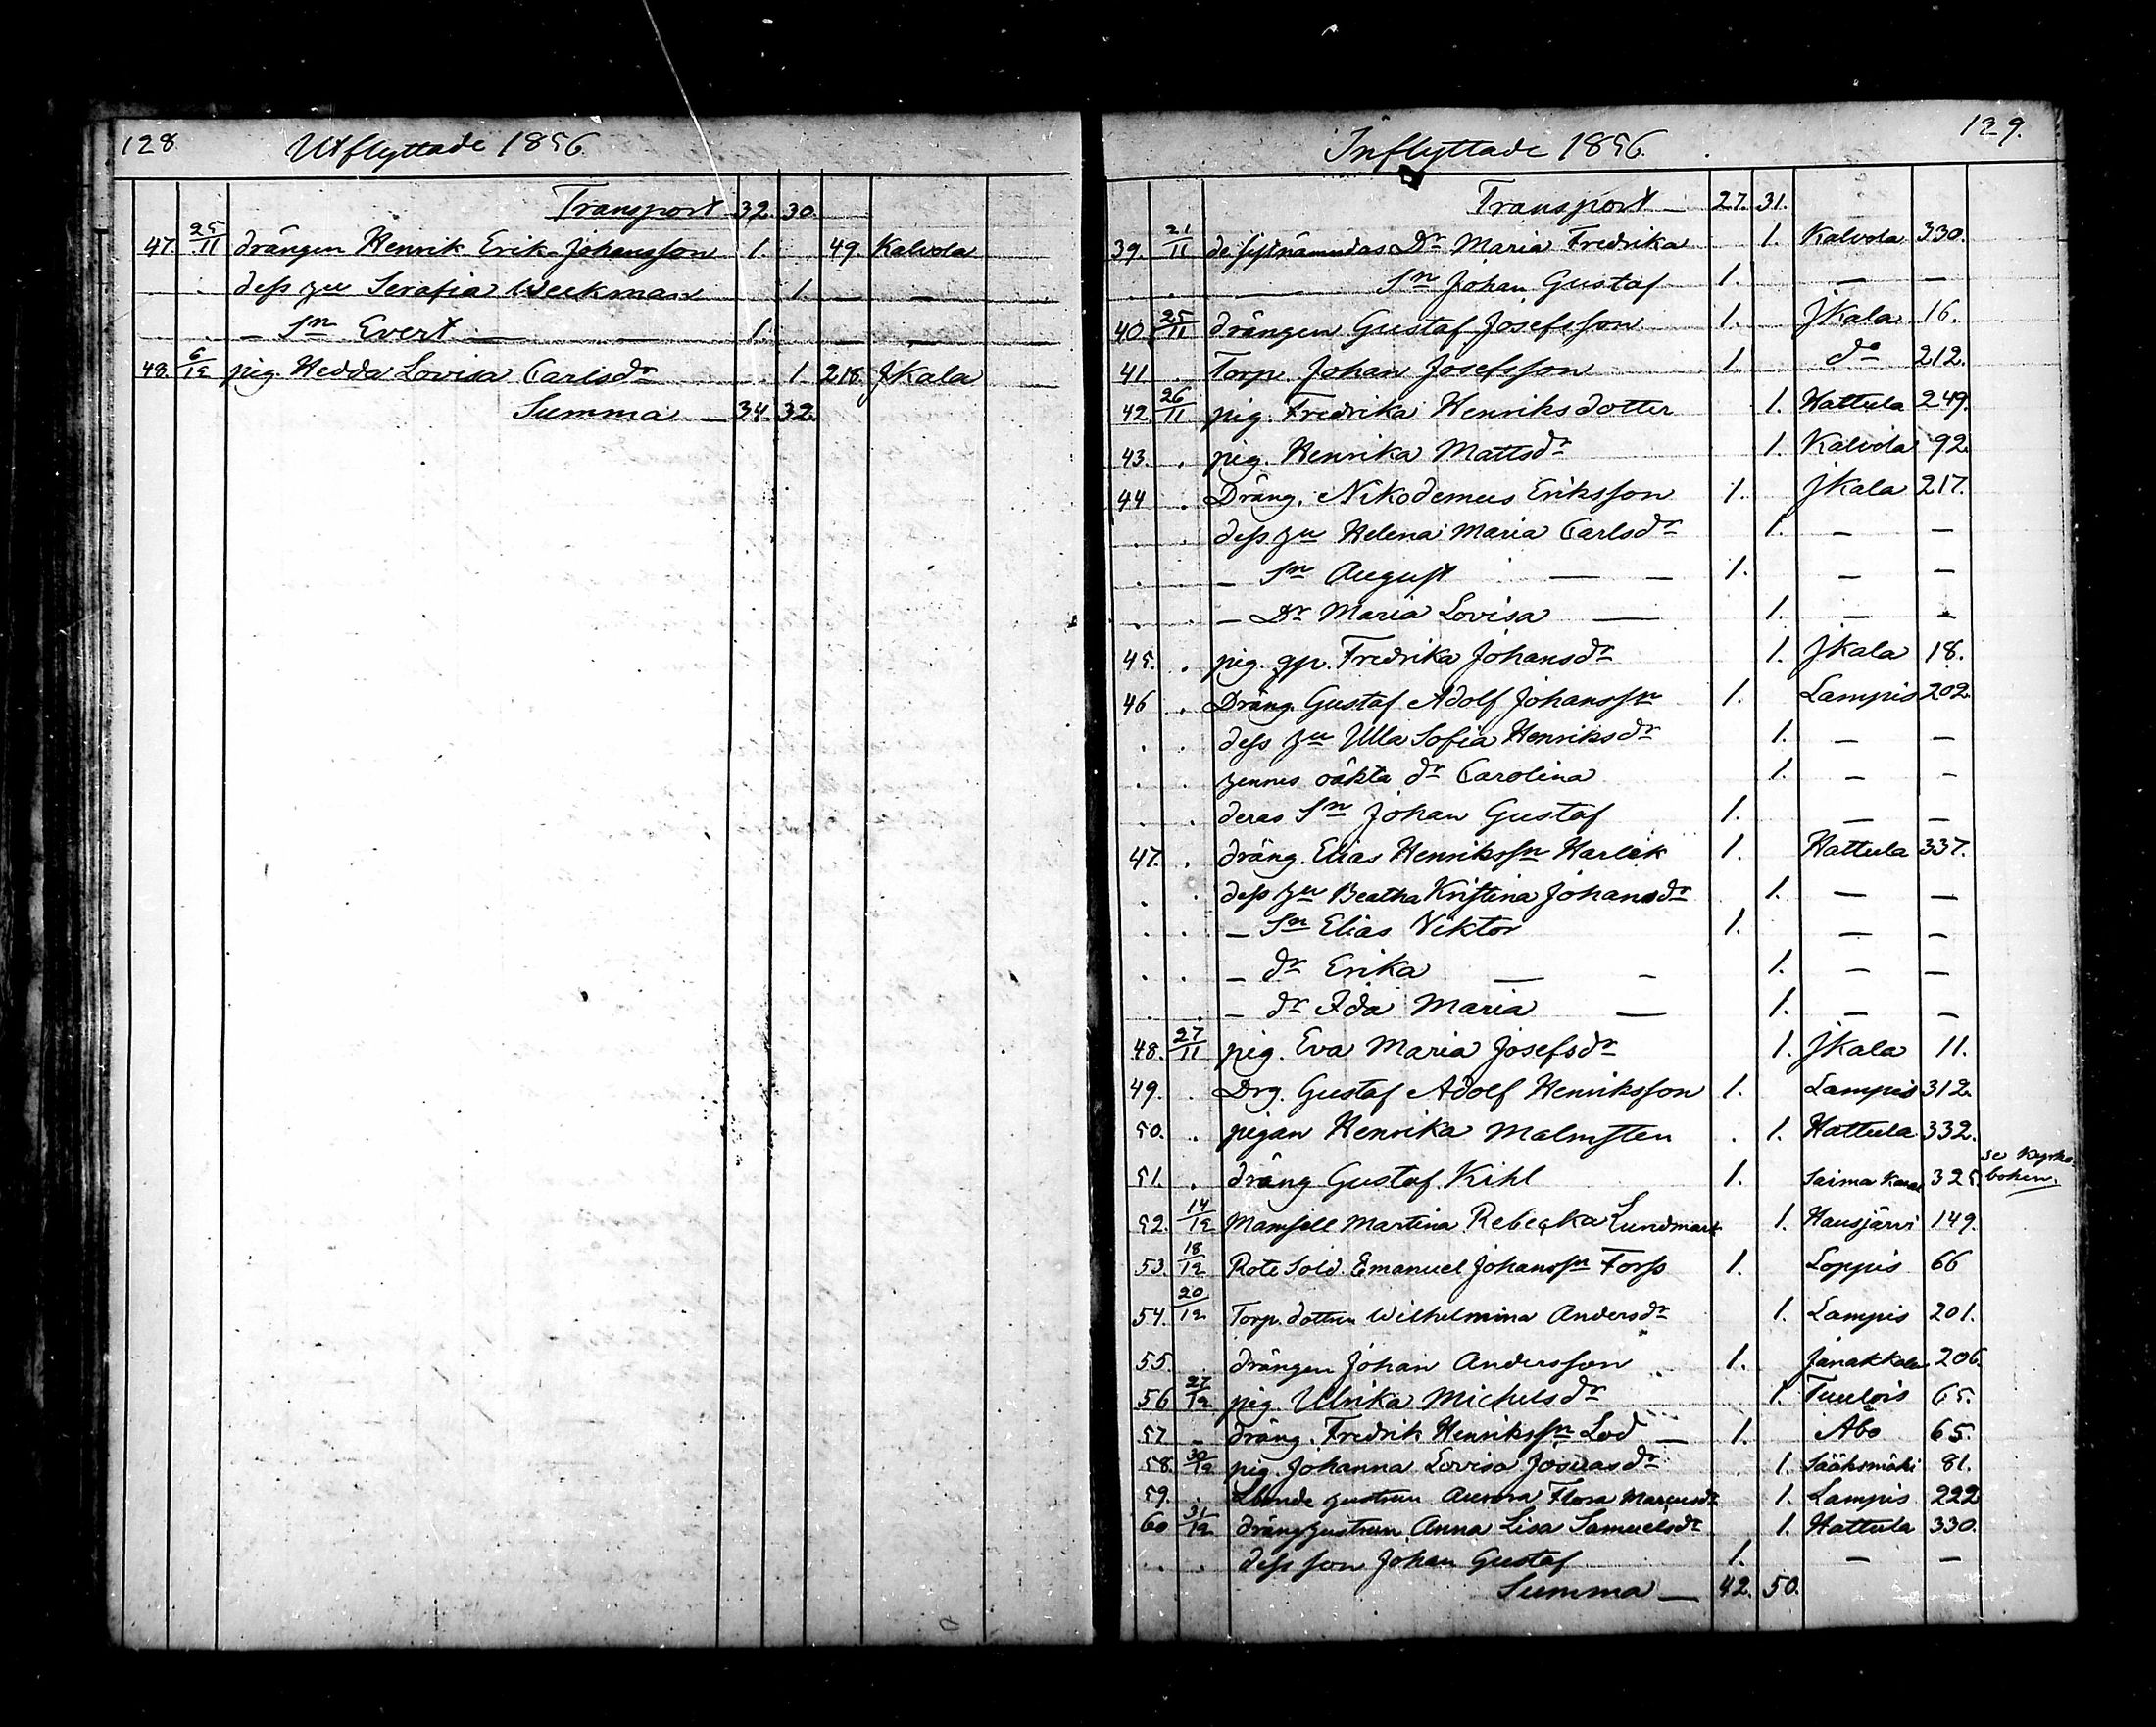 128
Utflyttade 1856.
Transport 32. 30.
47. 25/11 drängen Henrik Erik Johansson 1. 49. Kalvola
dess hu Serafia Weckman 1. — —
— Sn Evert — — 1. — —
48. 6/12 pig. Hedda Lovisa Carlsdr 1. 218. JKala
Summa — 34. 32.
129.
Inflyttade 1856.
Transport — 27. 31.
39. 21/11 de sistnämndas Dr Maria Fredrika 1. Kalvola 330.
— Sn Johan Gustaf 1. — —
40. 25/11 drängen Gustaf Josefsson 1. JKala 16.
41 . Torp. Johan Josefsson 1. do 212.
42. 26/11 pig. Fredrika Henriksdotter 1. Hattula 249.
43. . pig. Henrika Mattsdr 1. Kalvola 92.
44 . Dräng. Nikodemus Eriksson 1. JKala 217.
. . dess hu Helena Maria Carlsdr 1. — —
. . — Sn August — — 1. — —
. . — Dr Maria Lovisa — 1. — —
45. . pig. Fredrika Johansdr 1. JKala 18.
46 . Dräng. Gustaf Adolf Johanssn 1. Lampis 202.
. . dess hu Ulla Sofia Henriksdr 1. — —
. . hennes oäkta dr Carolina 1. — —
. . deras Sn Johan Gustaf 1. — —
47. . dräng. Elias Henrikssn Harlek 1. Hattula 337.
. . dess hu Beatha Kristina Johansdr 1. — —
. . — Sn Elias Viktor 1. — —
. . — dr Erika — — 1. — —
. . — dr Ida Maria — 1. — —
48. 27/11 pig. Eva Maria Josefsdr 1. JKala 11.
49. . Drg. Gustaf Adolf Henriksson 1. Lampis 312.
50. . pigan Henrika Malmsten . 1. Hattula 332.
51. . dräng Gustaf Kihl 1. Saima Kanal 325. se Kyrko-
boken.
52. 14/12 Mamsell Martina Rebecka Lundmark 1. Hausjärvi 149.
53. 18/12 Rote Sold. Emanuel Johanssn Forss 1. Loppis 66
54. 20/12 Torp. dottren Wilhelmina Andersdr 1. Lampis 201.
55. . drängen Johan Andersson 1. Janakkala 206.
56 27/12 pig. Ulrika Michelsdr 1. Tuulois 65.
57 — dräng. Fredrik Henrikssn Lod — 1. Åbo 65.
58. 30/12 pig. Johanna Lovisa Josuasdr 1. Sääksmäki 81.
59. . hustrun Aurora Flora Marcusdr 1. Lampis 222
60 31/12 dränghustrun Anna Lisa Samuelsdr 1. Hattula 330.
. . dess son Johan Gustaf 1. — —
Summa — 42. 50.